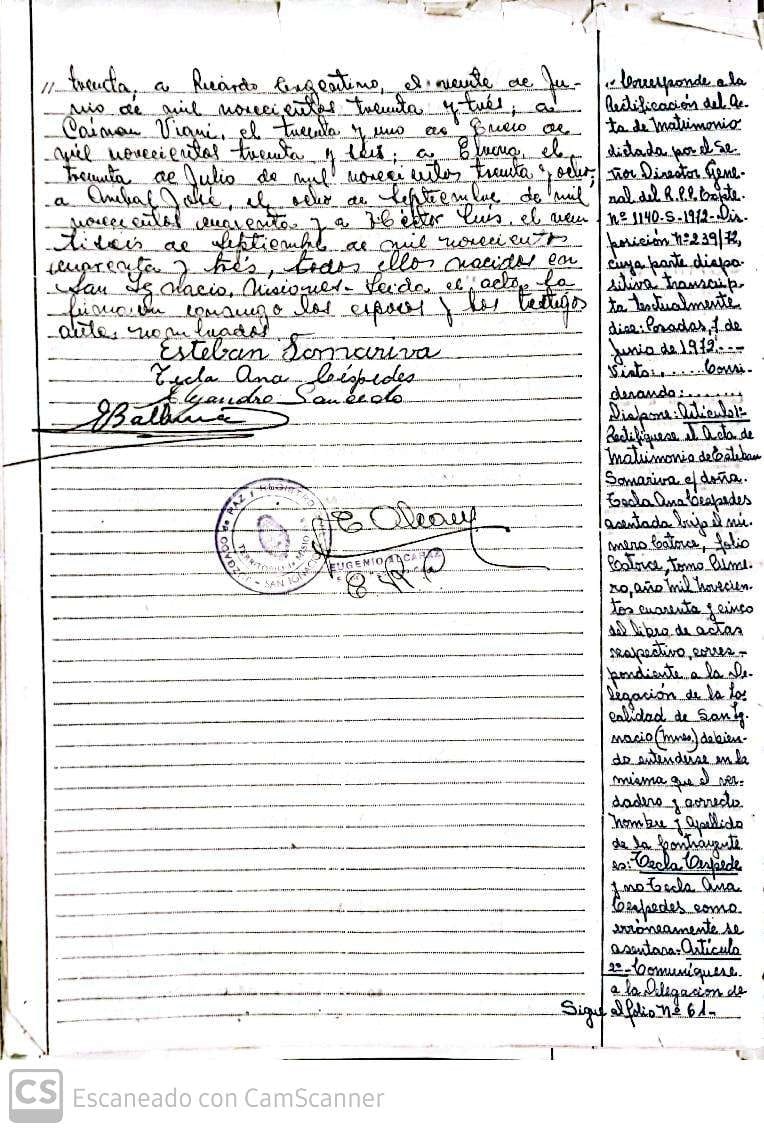 // treinta, a Ricardo Argentino, el veinte de Ju-
nio de mil novecientos treinta y tres, a
el treinta y uno de Enero de
mil novecientos treinta y seis; a Elvira el
treinta de Julio de mil novecientos treinta y ocho;
a Anibal José, el ocho de Septiembre de mil
novecientos cuarenta y a Héctor Luis, el vein
tiseis de Septiembre de mil novecientos
cuarenta y trés, todos ellos nacidos en
San Ignacio, Misiones- Leida el acta, la
firman conmigo los esposos y los testigos
antes nombrados
Esteban Somariva
Tecla Ana Céspedes
Alejandro Saucedo
EBalbuena
JUZGADO de PAZ y REGISTRO
TERRITORIO de MISIO
SAN IGNACIO
EUGENIO ALCARAZ
.. Corresponde a la
Rectificación del Ac-
ta de Matrimonio
dictada por el Se-
ñor Director Gene-
ral del R.P.P. Expte.
nº 1140-S-1972-Dis-
posición nº 239/72,
cuya parte dispo-
sitiva transcrip-
ta textualmente
dice: Posadas, 7 de
Junio de 1972.---
Visto:,.....Consi-
derando:.......
Dispone: Artículo 1º-
Rectifíquese el Acta de
Matrimonio de Esteban
Somariva c/ doña.
Tecla Ana Cespedes
asentada bajo el nú-
mero Catorce, folio
Catorce, tomo Prime-
ro, año mil novecien-
tos cuarenta y cinco
del libro de actas
respectivo, corres-
pondiente a la De-
legación de la lo-
calidad de San Ig-
nacio (Mnes) debien-
do entenderse en la
misma que el ver-
dadero y correcto
nombre y apellido
de la Contrayente
es: Tecla Cespede
y no Tecla Ana
Cespedes como
erróneamente se
asentara- Artículo
2º- Comuníquese
a la Delegación de
Sigue al folio Nº 61-
CS Escaneado con CamScanner